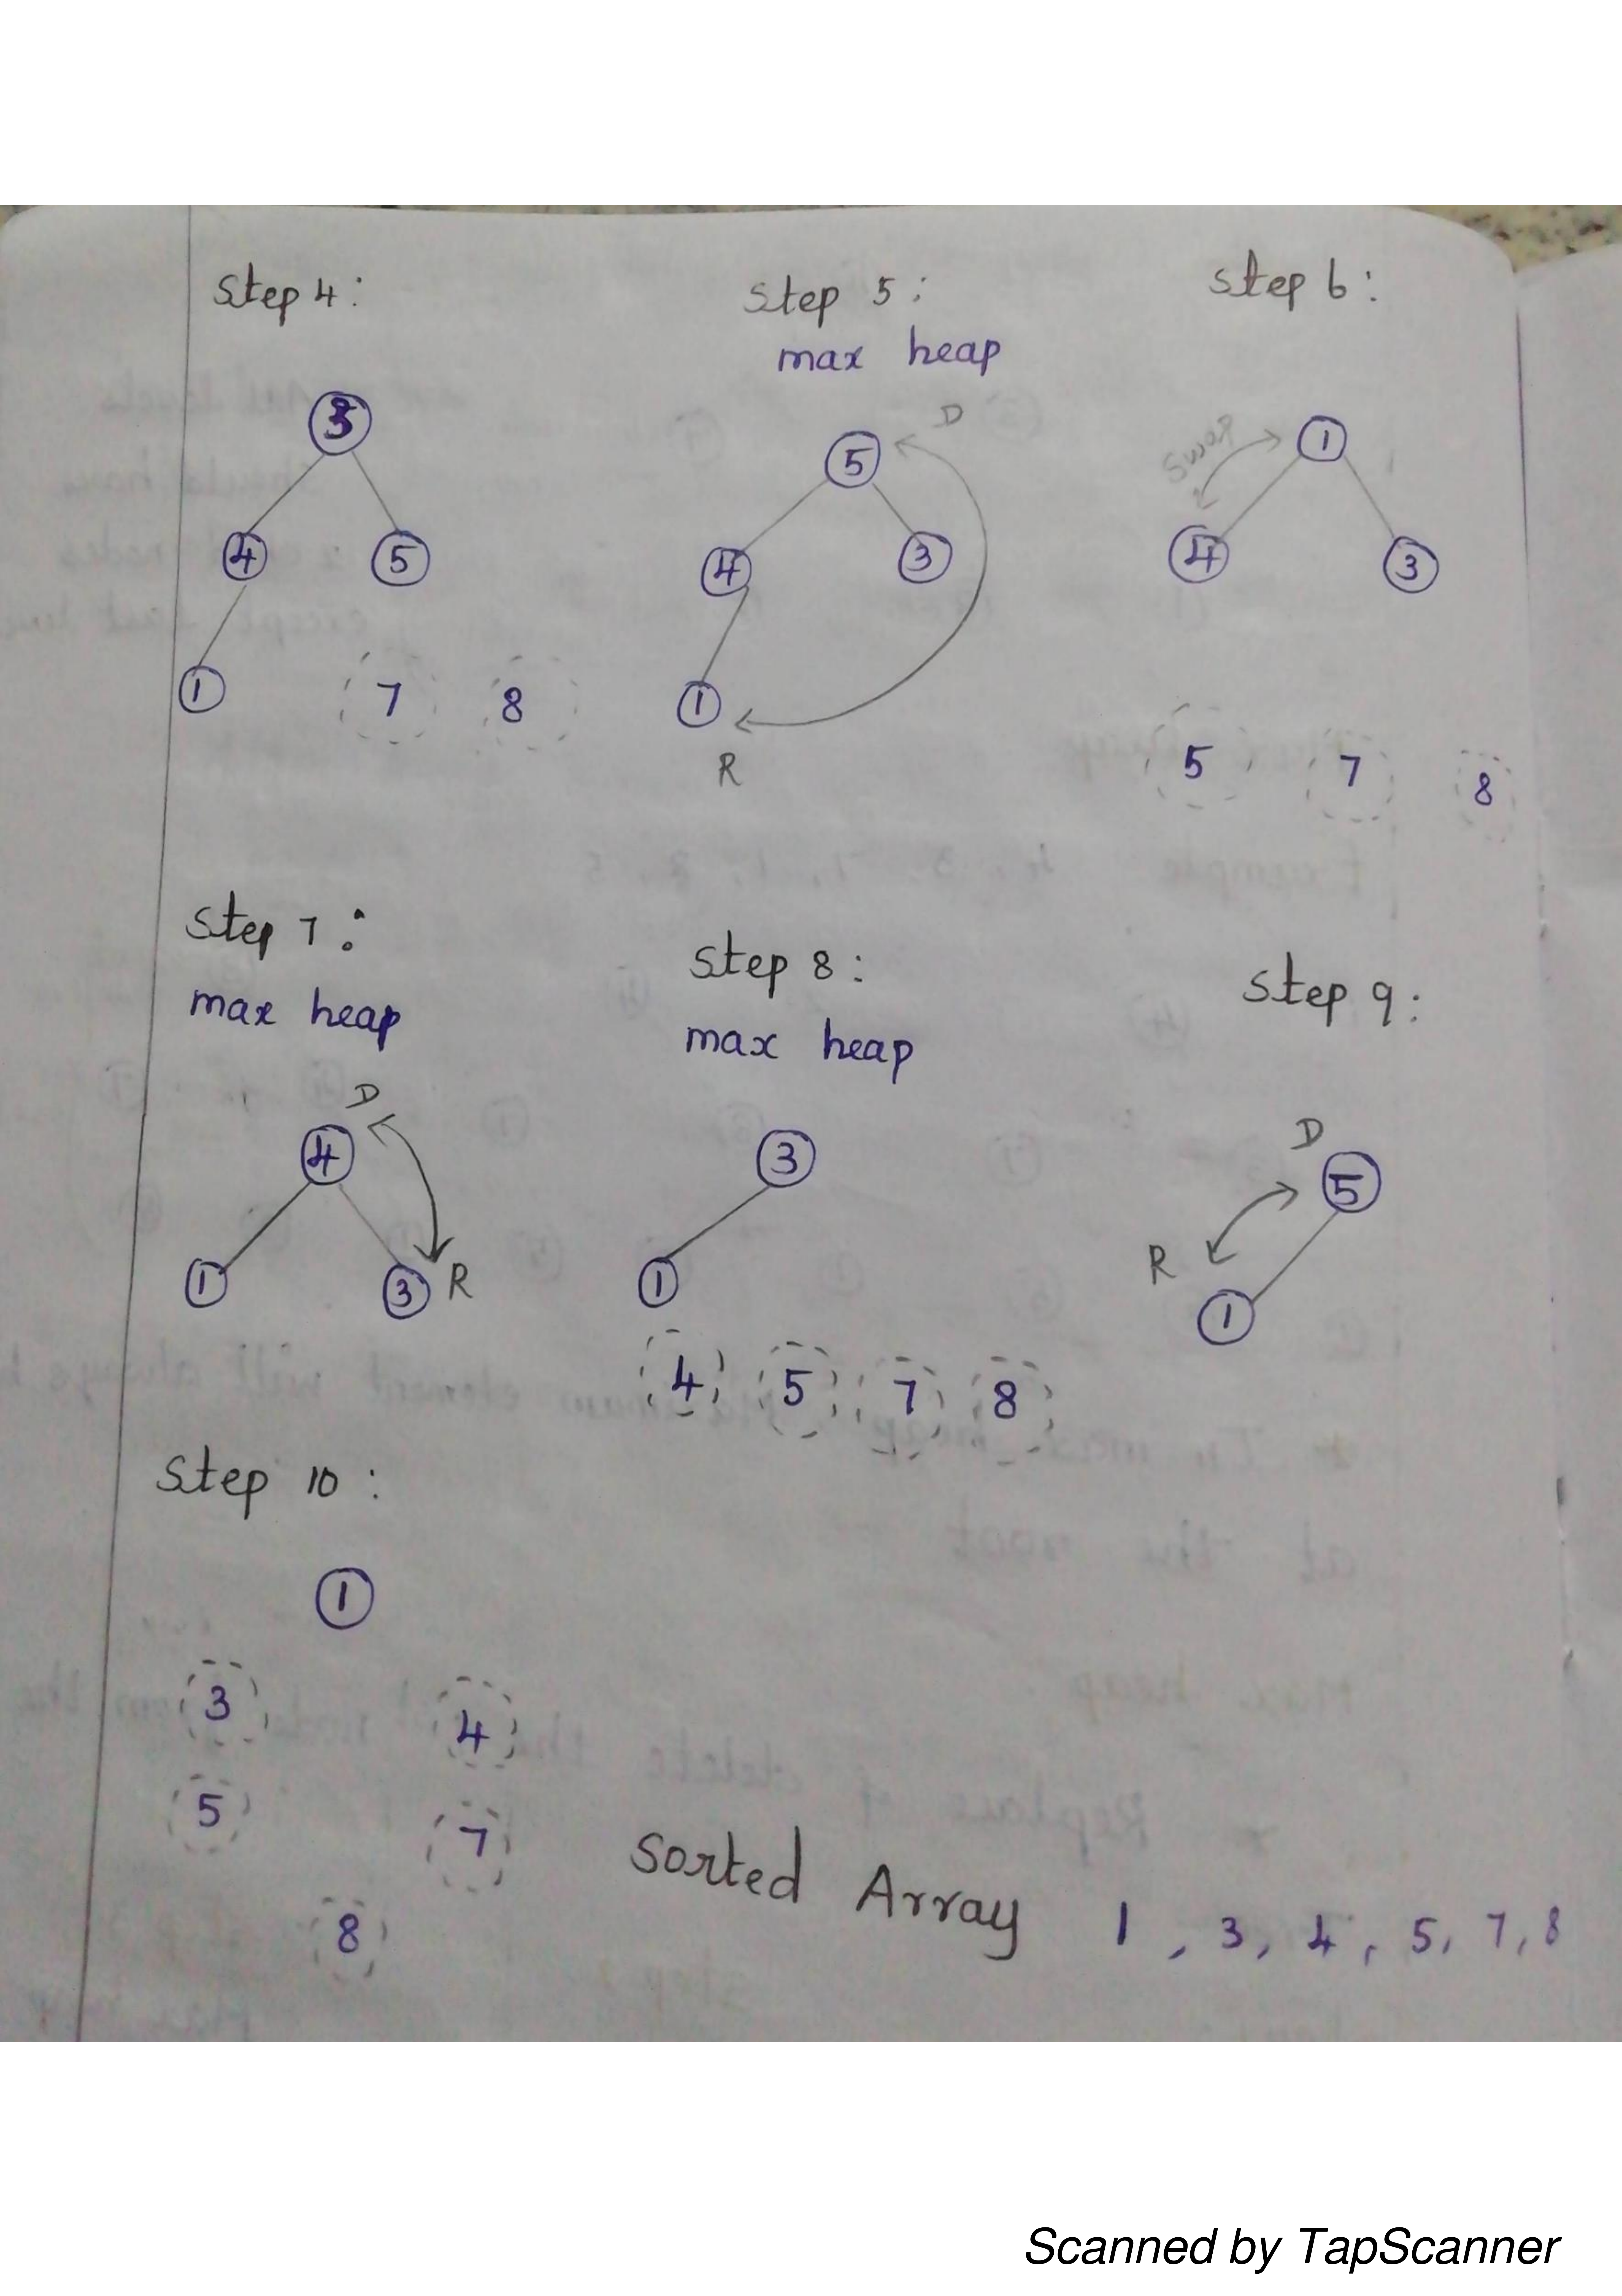 Step 4:
3
4 5
1
7 8
Step 5:
max heap
D
5
4 3
1
R
Step 6:
Swap
1
4 3
5 7 8
Step 7:
max heap
D
4
1 3 R
Step 8:
max heap
3
1
4 5 7 8
Step 9:
D
5
R
1
Step 10:
1
3 4
5 7
8
Sorted Array 1, 3, 4, 5, 7, 8
Scanned by TapScanner